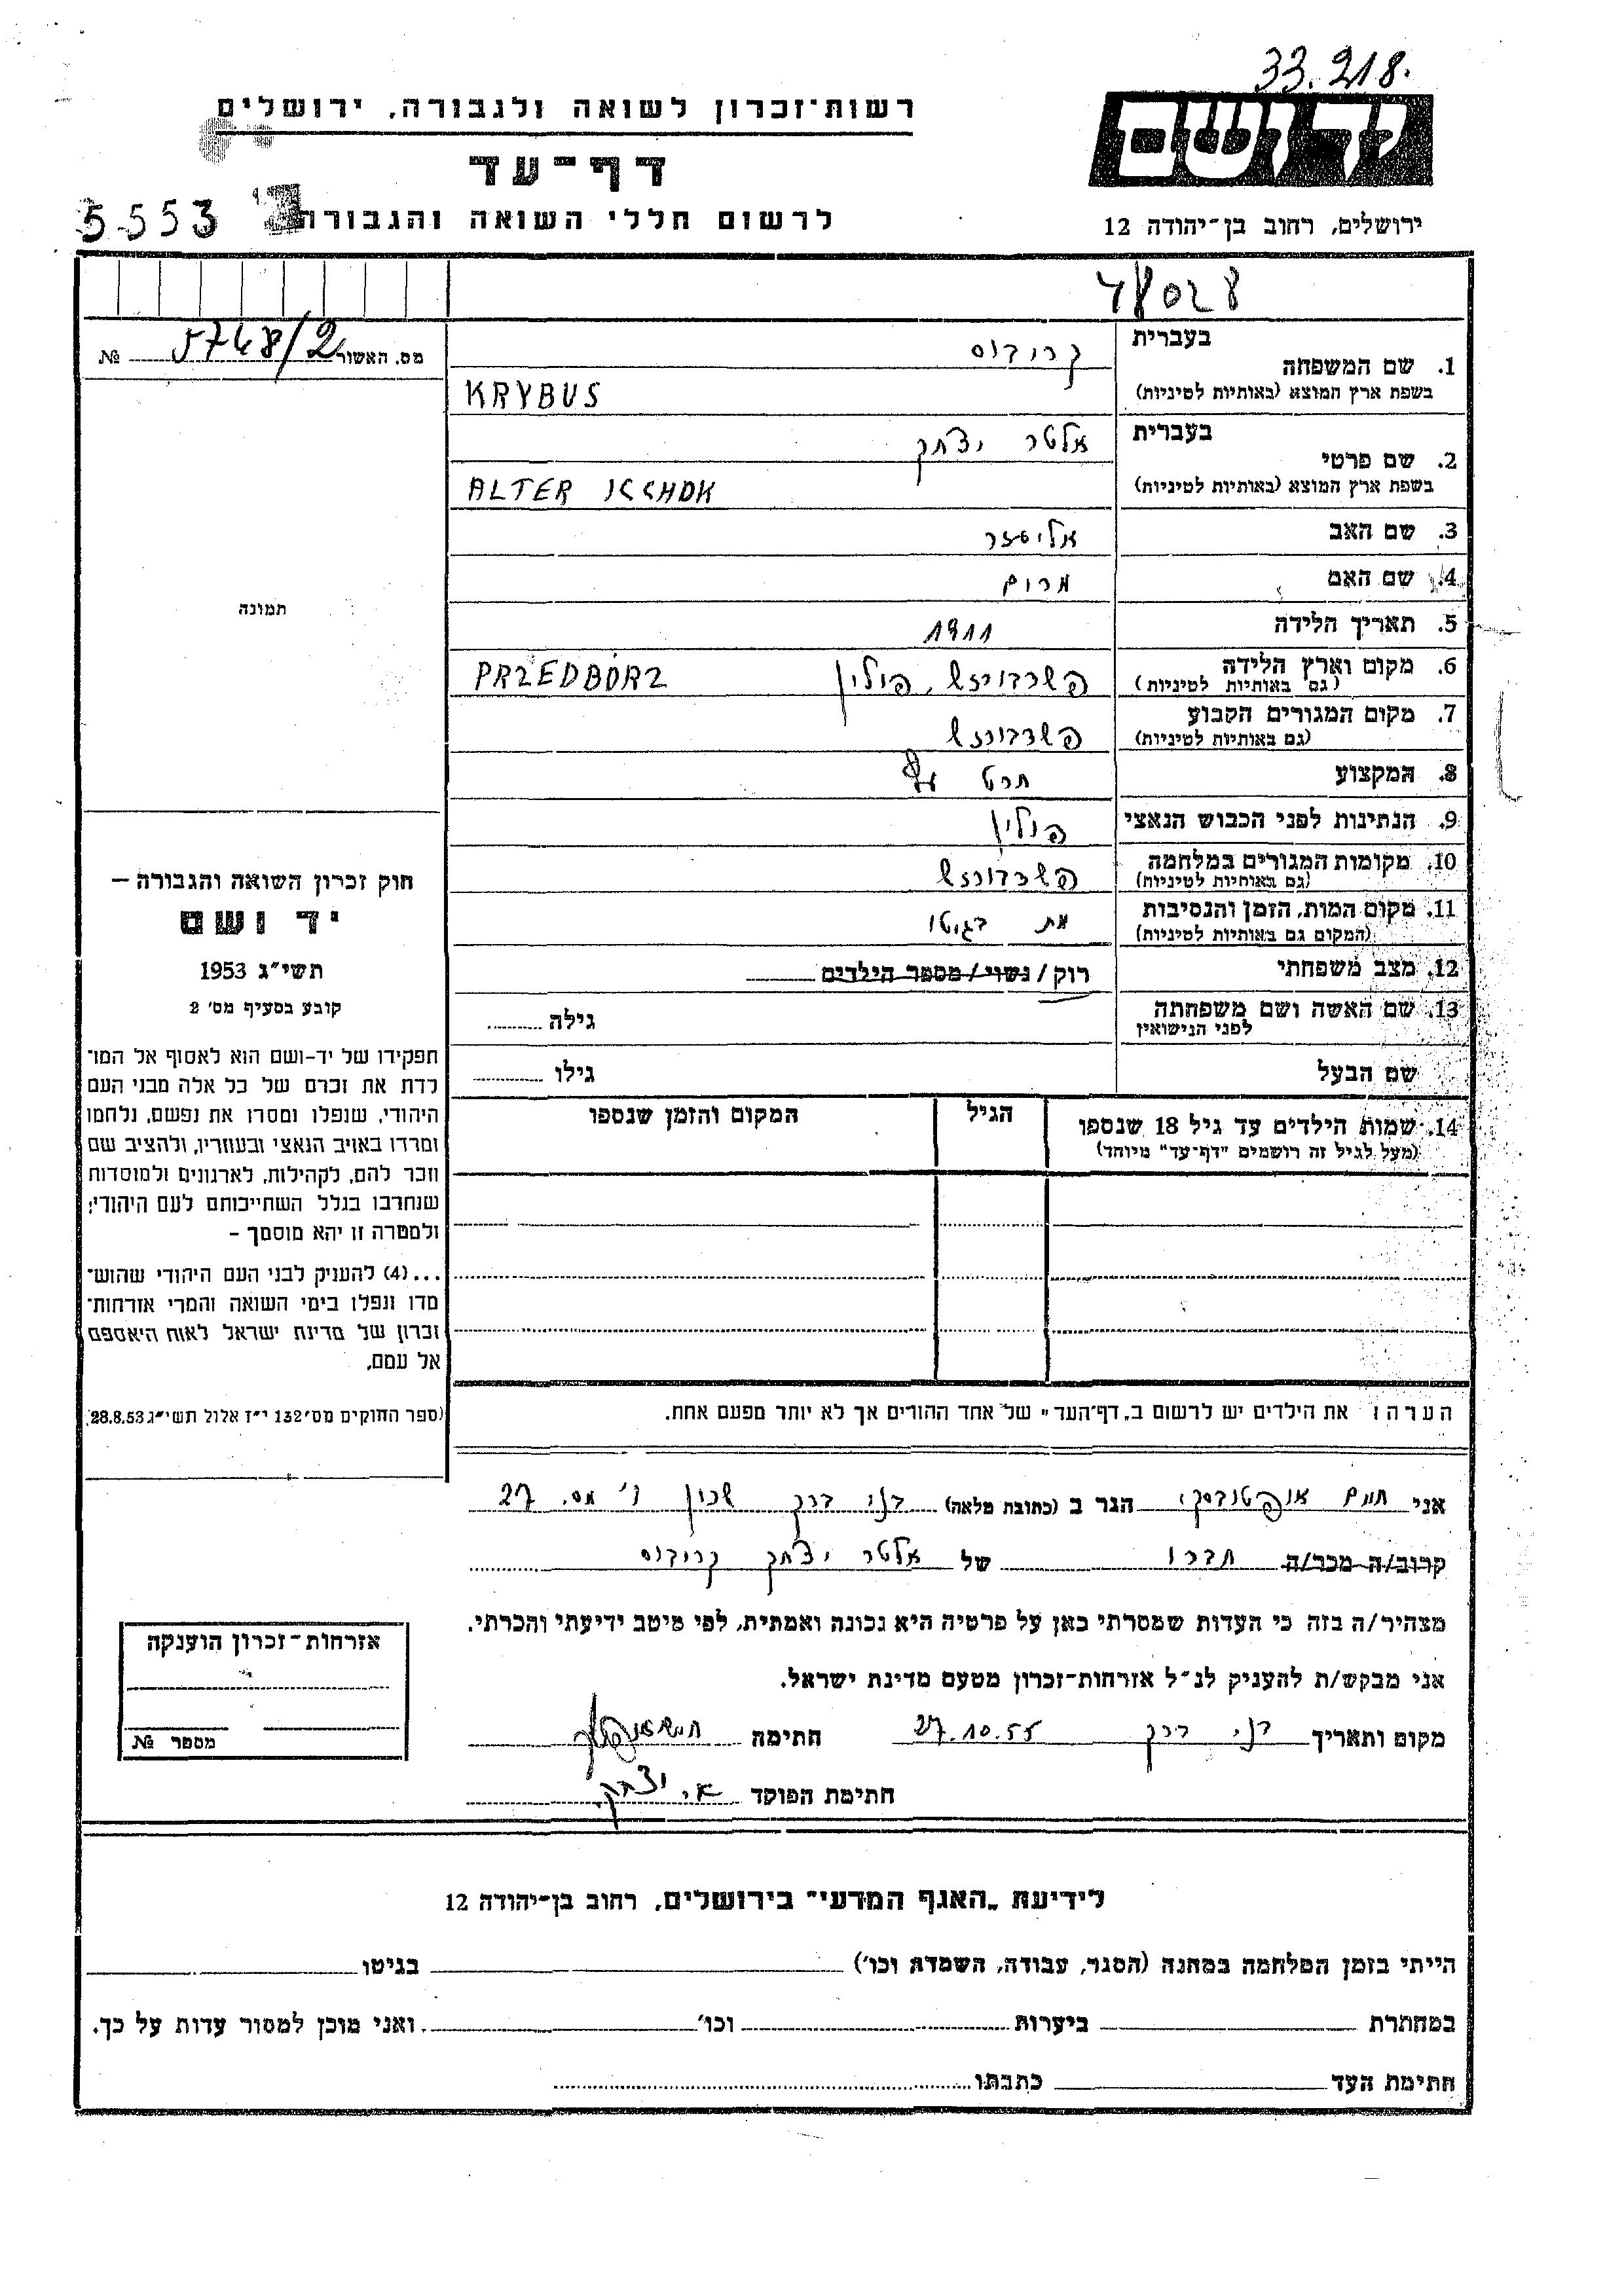 33.218.
רשות־זכרון לשואה ולגבורה, ירושלים
יד ושם
דף־עד
לרשום חללי השואה והגבורה
5553
ירושלים, רחוב בן־יהודה 12
48028
מס. האשור 5748/2 №
1. שם המשפחה
בעברית קריבוס
בשפת ארץ המוצא (באותיות לטיניות) KRYBUS
2. שם פרטי
בעברית אלטר יצחק
בשפת ארץ המוצא (באותיות לטיניות) ALTER ICCHOK
3. שם האב אליעזר
4. שם האם מרים
5. תאריך הלידה 1911
6. מקום וארץ הלידה פשדבוז'ש, פולין PRZEDBÓRZ
(גם באותיות לטיניות)
7. מקום המגורים הקבוע פשדבוז'ש
(גם באותיות לטיניות)
8. המקצוע חרט
9. הנתינות לפני הכבוש הנאצי פולין
10. מקומות המגורים במלחמה פשדבוז'ש
(גם באותיות לטיניות)
11. מקום המות, הזמן והנסיבות מת בגיטו
(המקום גם באותיות לטיניות)
12. מצב משפחתי רוק / נשוי / מספר הילדים
13. שם האשה ושם משפחתה גילה
לפני הנישואין
שם הבעל גילו
14. שמות הילדים עד גיל 18 שנספו הגיל המקום והזמן שנספו
(מעל לגיל זה רושמים "דף־עד" מיוחד)
הערה: את הילדים יש לרשום ב„דף־העד" של אחד ההורים אך לא יותר מפעם אחת.
תמונה
חוק זכרון השואה והגבורה –
יד ושם
תשי"ג 1953
קובע בסעיף מס' 2
תפקידו של יד-ושם הוא לאסוף אל המו־
לדת את זכרם של כל אלה מבני העם
היהודי, שנפלו ומסרו את נפשם, נלחמו
ומרדו באויב הנאצי ובעוזריו, ולהציב שם
וזכר להם, לקהילות, לארגונים ולמוסדות
שנחרבו בגלל השתייכותם לעם היהודי;
ולמטרה זו יהא מוסמך –
...(4) להעניק לבני העם היהודי שהוש־
מדו ונפלו בימי השואה והמרי אזרחות־
זכרון של מדינת ישראל לאות היאספם
אל עמם.
(ספר החוקים מס' 132 י"ז אלול תשי"ג 28.8.53)
אני חיים הגר ב (כתובת מלאה) בני ברק שכון ו' מס. 27
קרוב/ה מכר/ה חברו של אלטר יצחק קריבוס
מצהיר/ה בזה כי העדות שמסרתי כאן על פרטיה היא נכונה ואמתית, לפי מיטב ידיעתי והכרתי.
אני מבקש/ת להעניק לנ"ל אזרחות־זכרון מטעם מדינת ישראל.
מקום ותאריך בני ברק 27.10.55 חתימה
חתימת הפוקד א. יצחק
אזרחות־זכרון הוענקה
מספר №
לידיעת „האגף המדעי" בירושלים, רחוב בן־יהודה 12
הייתי בזמן המלחמה במחנה (הסגר, עבודה, השמדה וכו') בגיטו
במחתרת ביערות וכו' ואני מוכן למסור עדות על כך.
חתימת העד כתבתו